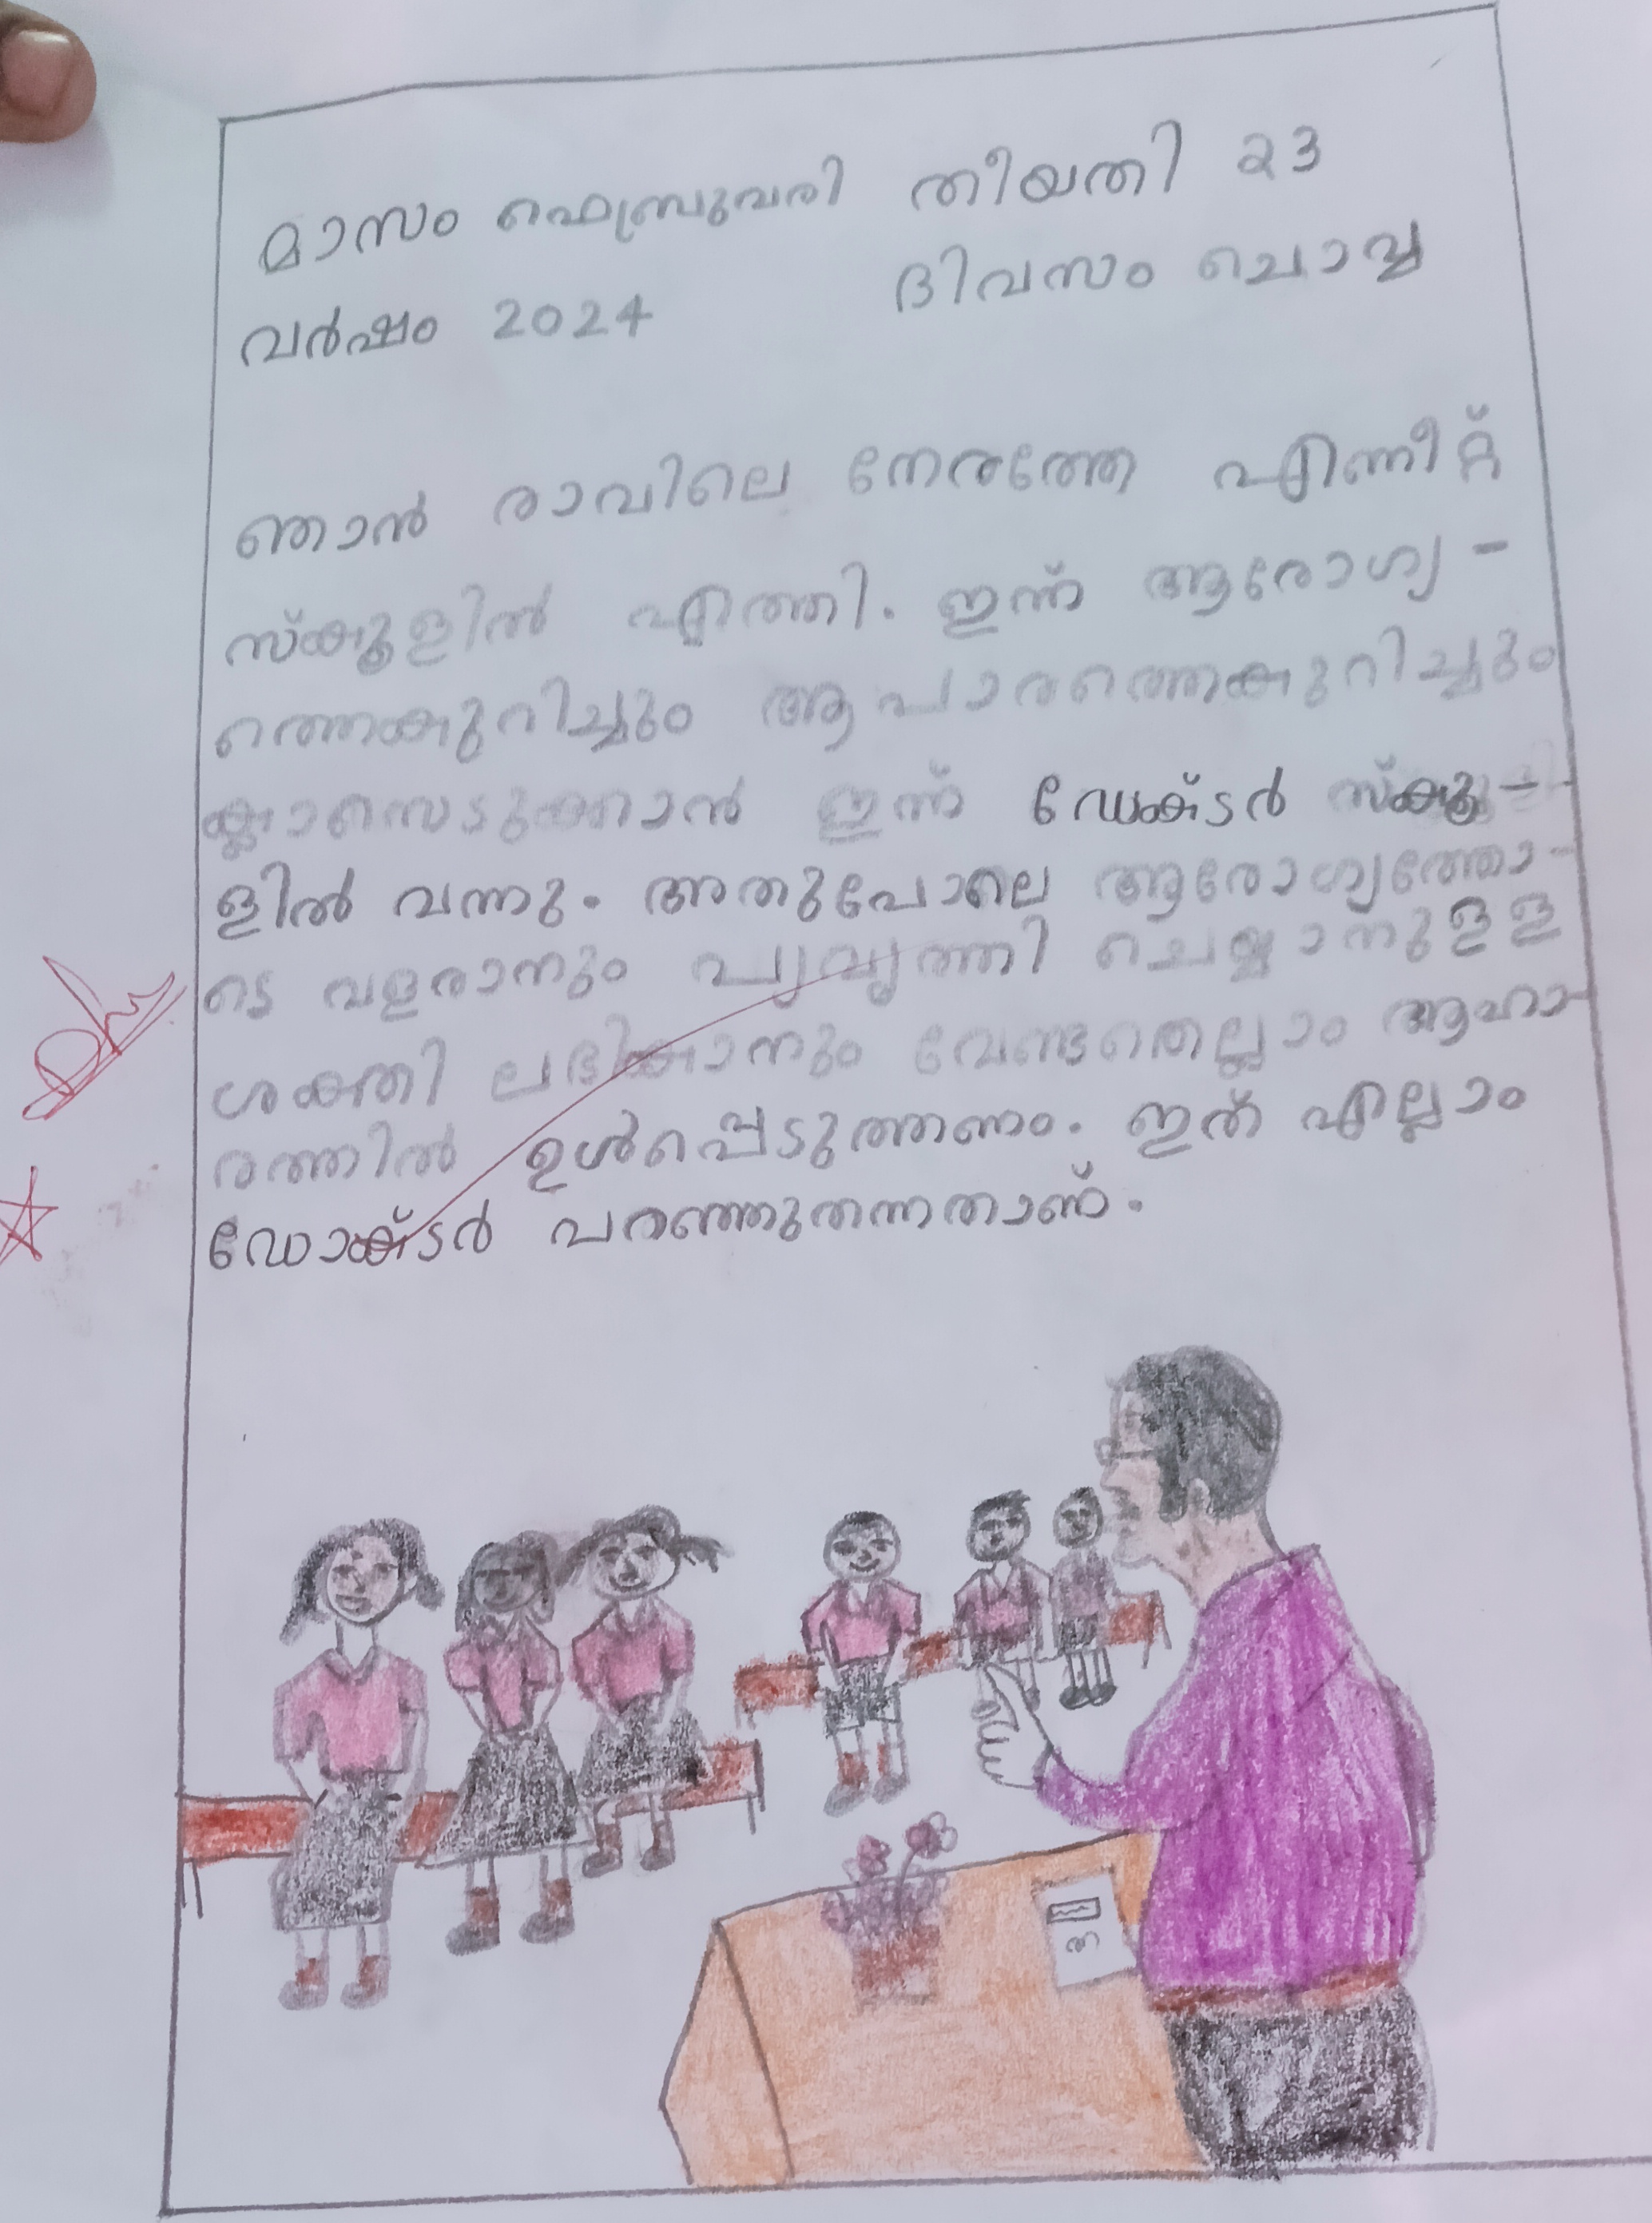 മാസം ഫെബ്രുവരി തീയതി 23
വർഷം 2024 ദിവസം ചൊവ്വ
ഞാൻ രാവിലെ നേരത്തേ എണീറ്റ്
സ്കൂളിൽ എത്തി. ഇന്ന് ആരോഗ്യ-
ത്തെക്കുറിച്ചും ആപാരത്തെകുറിച്ചും
ക്ലാസെടുക്കാൻ ഇന്ന് ഡോക്ടർ സ്കൂ-
ളിൽ വന്നു. അതുപോലെ ആരോഗ്യത്തോ-
ടെ വളരാനും പ്രവൃത്തി ചെയ്യാനുള്ള
ശക്തി ലഭിക്കാനും വേണ്ടതെല്ലാം ആഹാ-
രത്തിൽ ഉൾപ്പെടുത്തണം. ഇത് എല്ലാം
ഡോക്ടർ പറഞ്ഞുതന്നതാണ്.